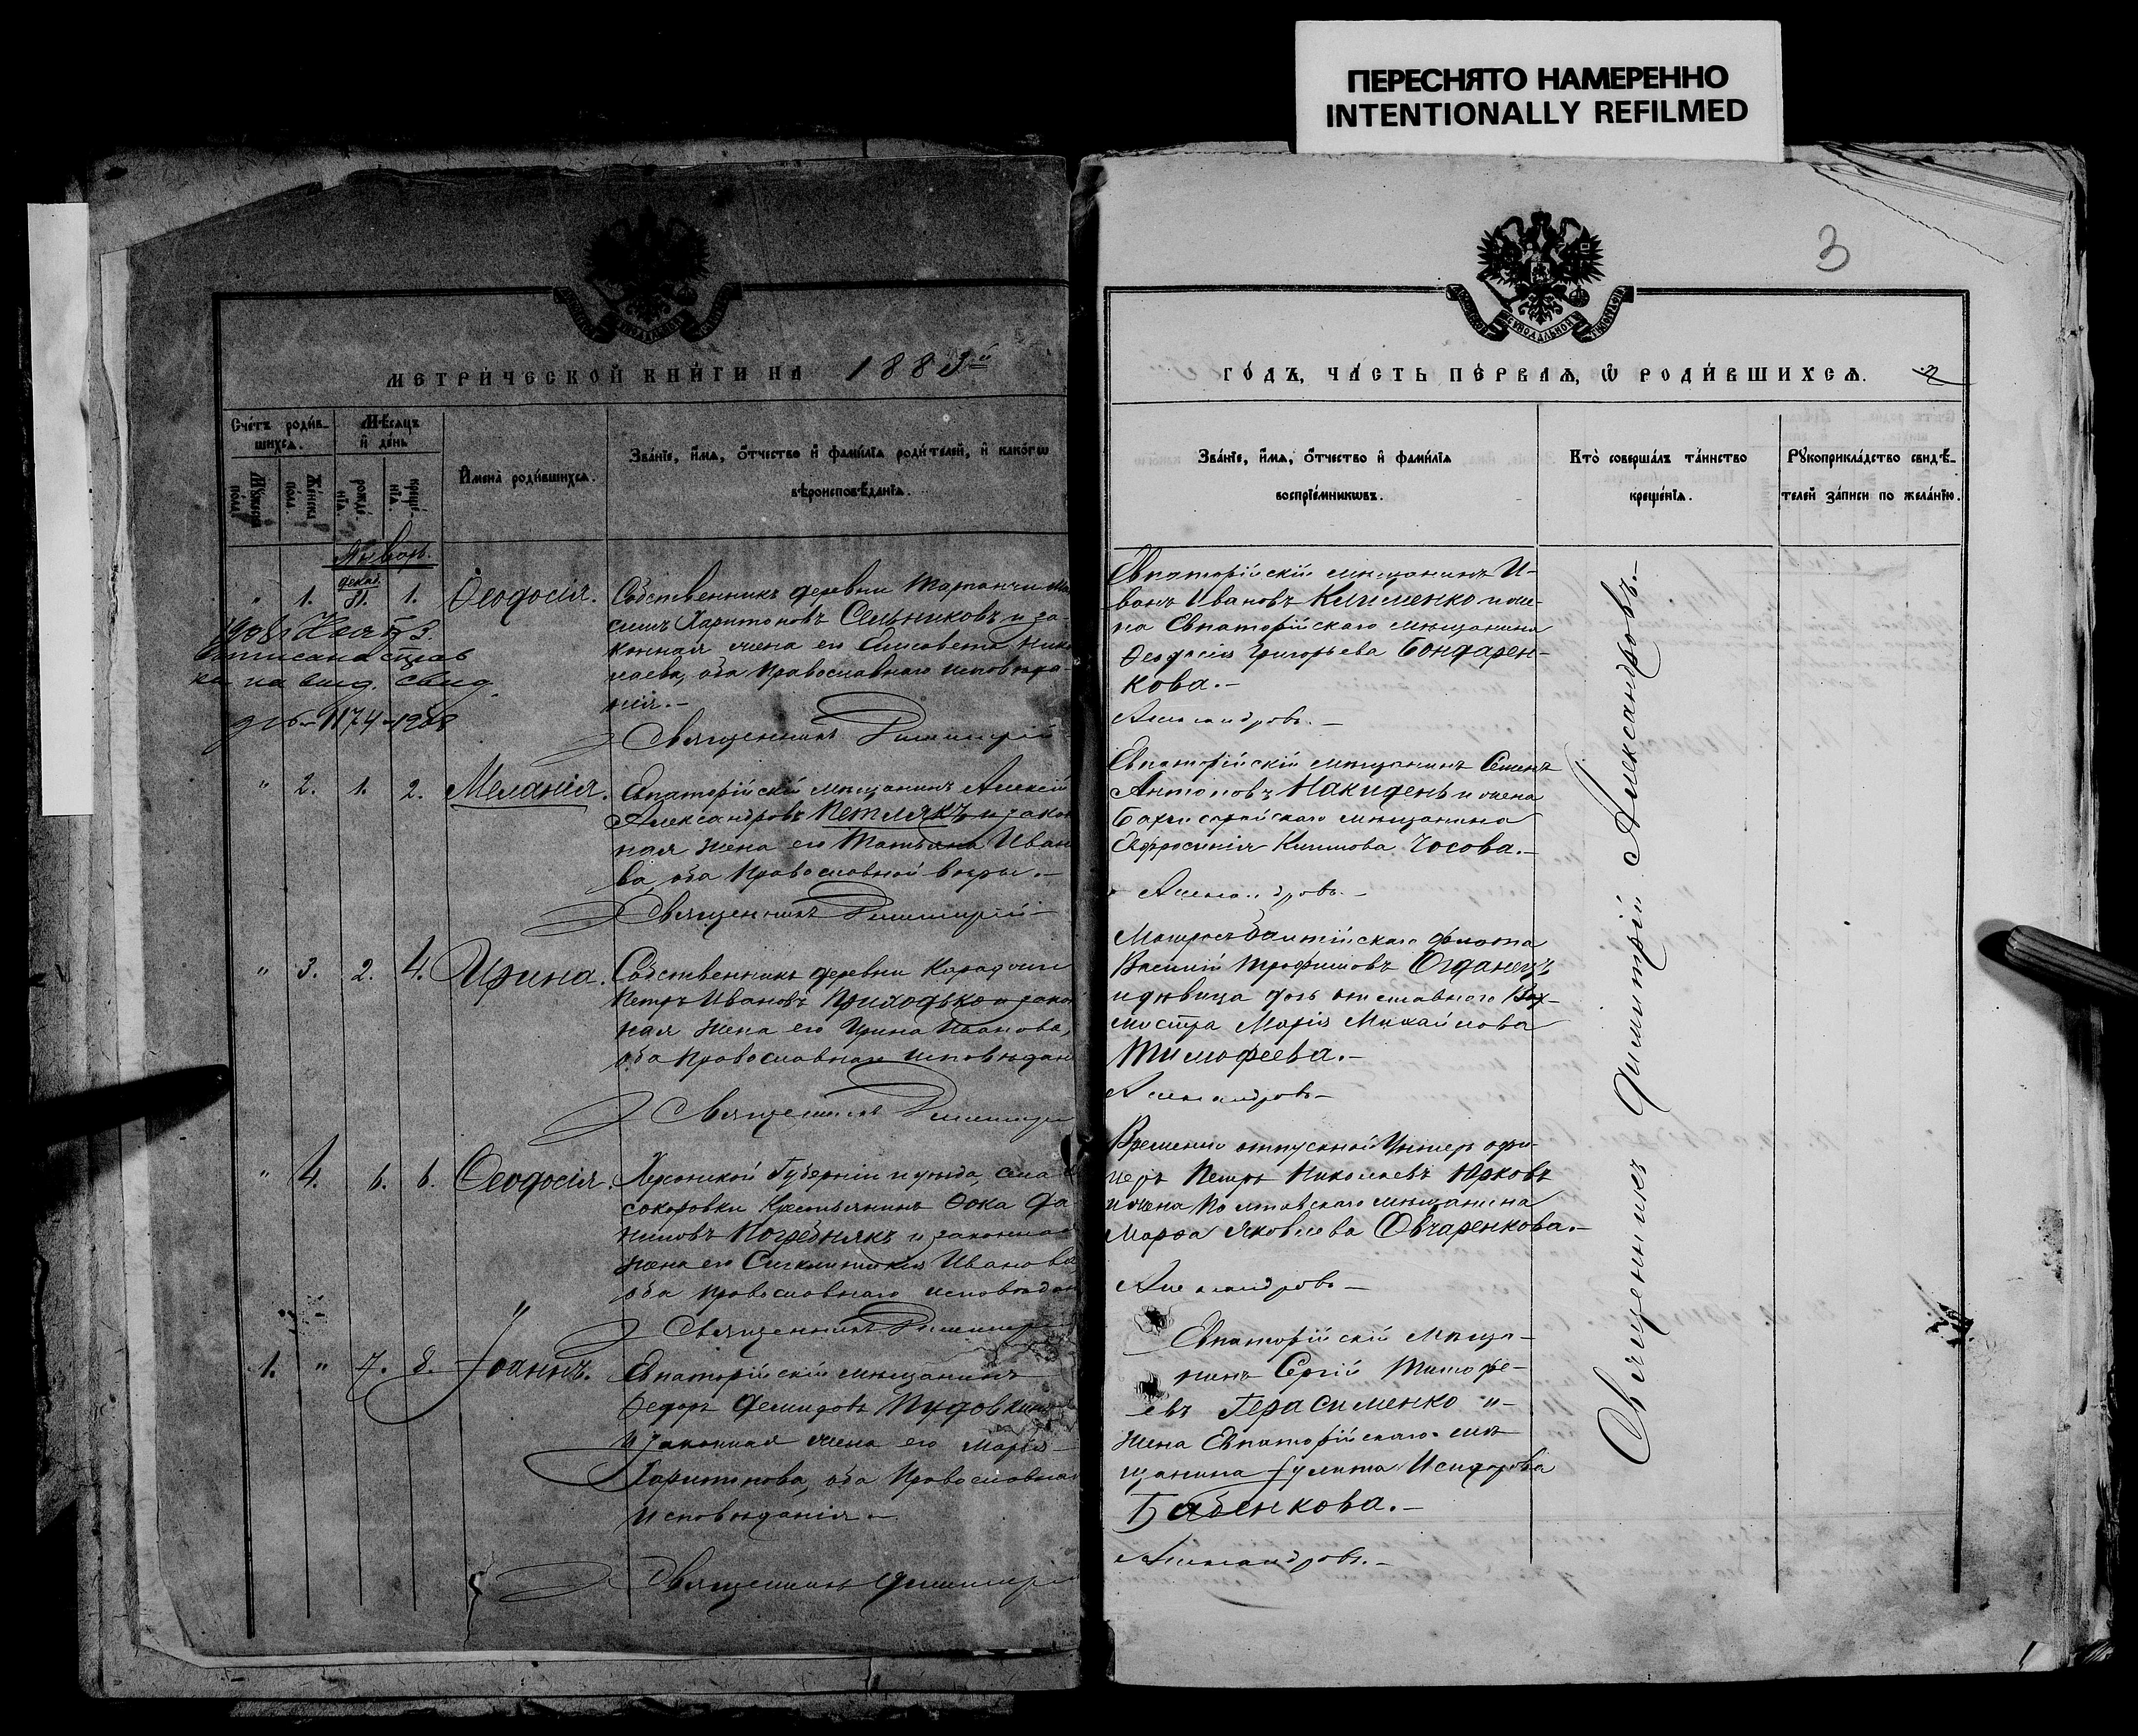 ПЕРЕСНЯТО НАМЕРЕННО
INTENTIONALLY REFILMED
3
МЕТРИ́ЧЕСКОЙ КНИ́ГИ НА 1883й
Сче́тъ роди́в-
шихсѧ.
Мѣ́сѧцъ
и҆ де́нь
Мꙋ́жеска по́ла.
Же́нска по́ла.
рожде́-
нїѧ.
креще́-
нїѧ.
И҆мена̀ роди́вшихсѧ.
Зва́нїе, и҆́мѧ, ѻ҆́тчество и҆ фами́лїѧ роди́телей, и҆ како́гѡ
вѣроисповѣ́данїѧ.
Январь.
декаб.
" 1. 31. 1. Ѳеодосія.
Собственникъ деревни
Харитоновъ Сельниковъ и за-
конная жена его Елисавета Нико
лаева, оба Православнаго исповѣда
нія.-
Священникъ Димитрій
1908
дѣ 1174-1908
" 2. 1. 2. Меланія.
Евпаторійскій мѣщанинъ Алексѣй
Александровъ Петлякъ и закон
ная жена его Татьяна Ивано
ва, оба Православной вѣры.-
Священникъ Димитрій
" 3. 2. 4. Ирина.
Собственникъ деревни
Петръ Ивановъ Приходько и закон
ная жена его Ирина Иванова,
оба Православнаго исповѣдан
Священникъ Димитрі
" 4. 6. 6. Ѳеодосія.
Херсонской Губерніи и уѣзда, села
Крестьянинъ Ѳока Да
ниловъ Погребнякъ и законная
жена его Иванова
оба Православнаго исповѣдан
Священникъ Димитрі
1. " 7. 8. Іоаннъ.
Евпаторійскій мѣщанинъ
Ѳедоръ Демидовъ Пудовкинъ
и законная жена его Марія
Харитонова, оба Православнаго
исповѣданія.-
Священникъ Димитрі
ГО́ДЪ, ЧА́СТЬ ПЕ́РВАѦ, Ѽ РОДИ́ВШИХСѦ. 2
Зва́нїе, и҆́мѧ, ѻ҆́тчество и҆ фами́лїѧ
воспрїе́мникѡвъ.
Кто̀ соверша́лъ та́инство
креще́нїѧ.
Рꙋкоприкла́дство свидѣ́-
телей за́писи по жела́нїю.
Евпаторійскій мѣщанинъ И-
ванъ Ивановъ Клименко и же-
на Евпаторійскаго мѣщанина
Ѳеодосія Григорьева Бондарен-
кова.-
Александровъ.-
Евпаторійскій мѣщанинъ Семенъ
Антоновъ Накидень и жена
Бахчисарайскаго мѣщанина
Евфросинія Климова Чосова.-
Александровъ.-
Матросъ Балтійскаго флота
Василій Трофимовъ Огданецъ
и дѣвица дочь отставнаго Вах-
мистра Марія Михайлова
Тимофеева.-
Александровъ-
Временно отпускной Унтеръ офи-
церъ Петръ Николаевъ Юрковъ
и жена Полтавскаго мѣщанина
Марѳа Яковлева Овчаренкова.-
Александровъ-
Евпаторійскій мѣща-
нинъ Сергій Тимоѳе-
евъ Герасименко и-
жена Евпаторійскаго мѣ-
щанина Іулита Исидорова
Бабенкова.-
Александровъ.-
Священникъ Димитрій Александровъ.-